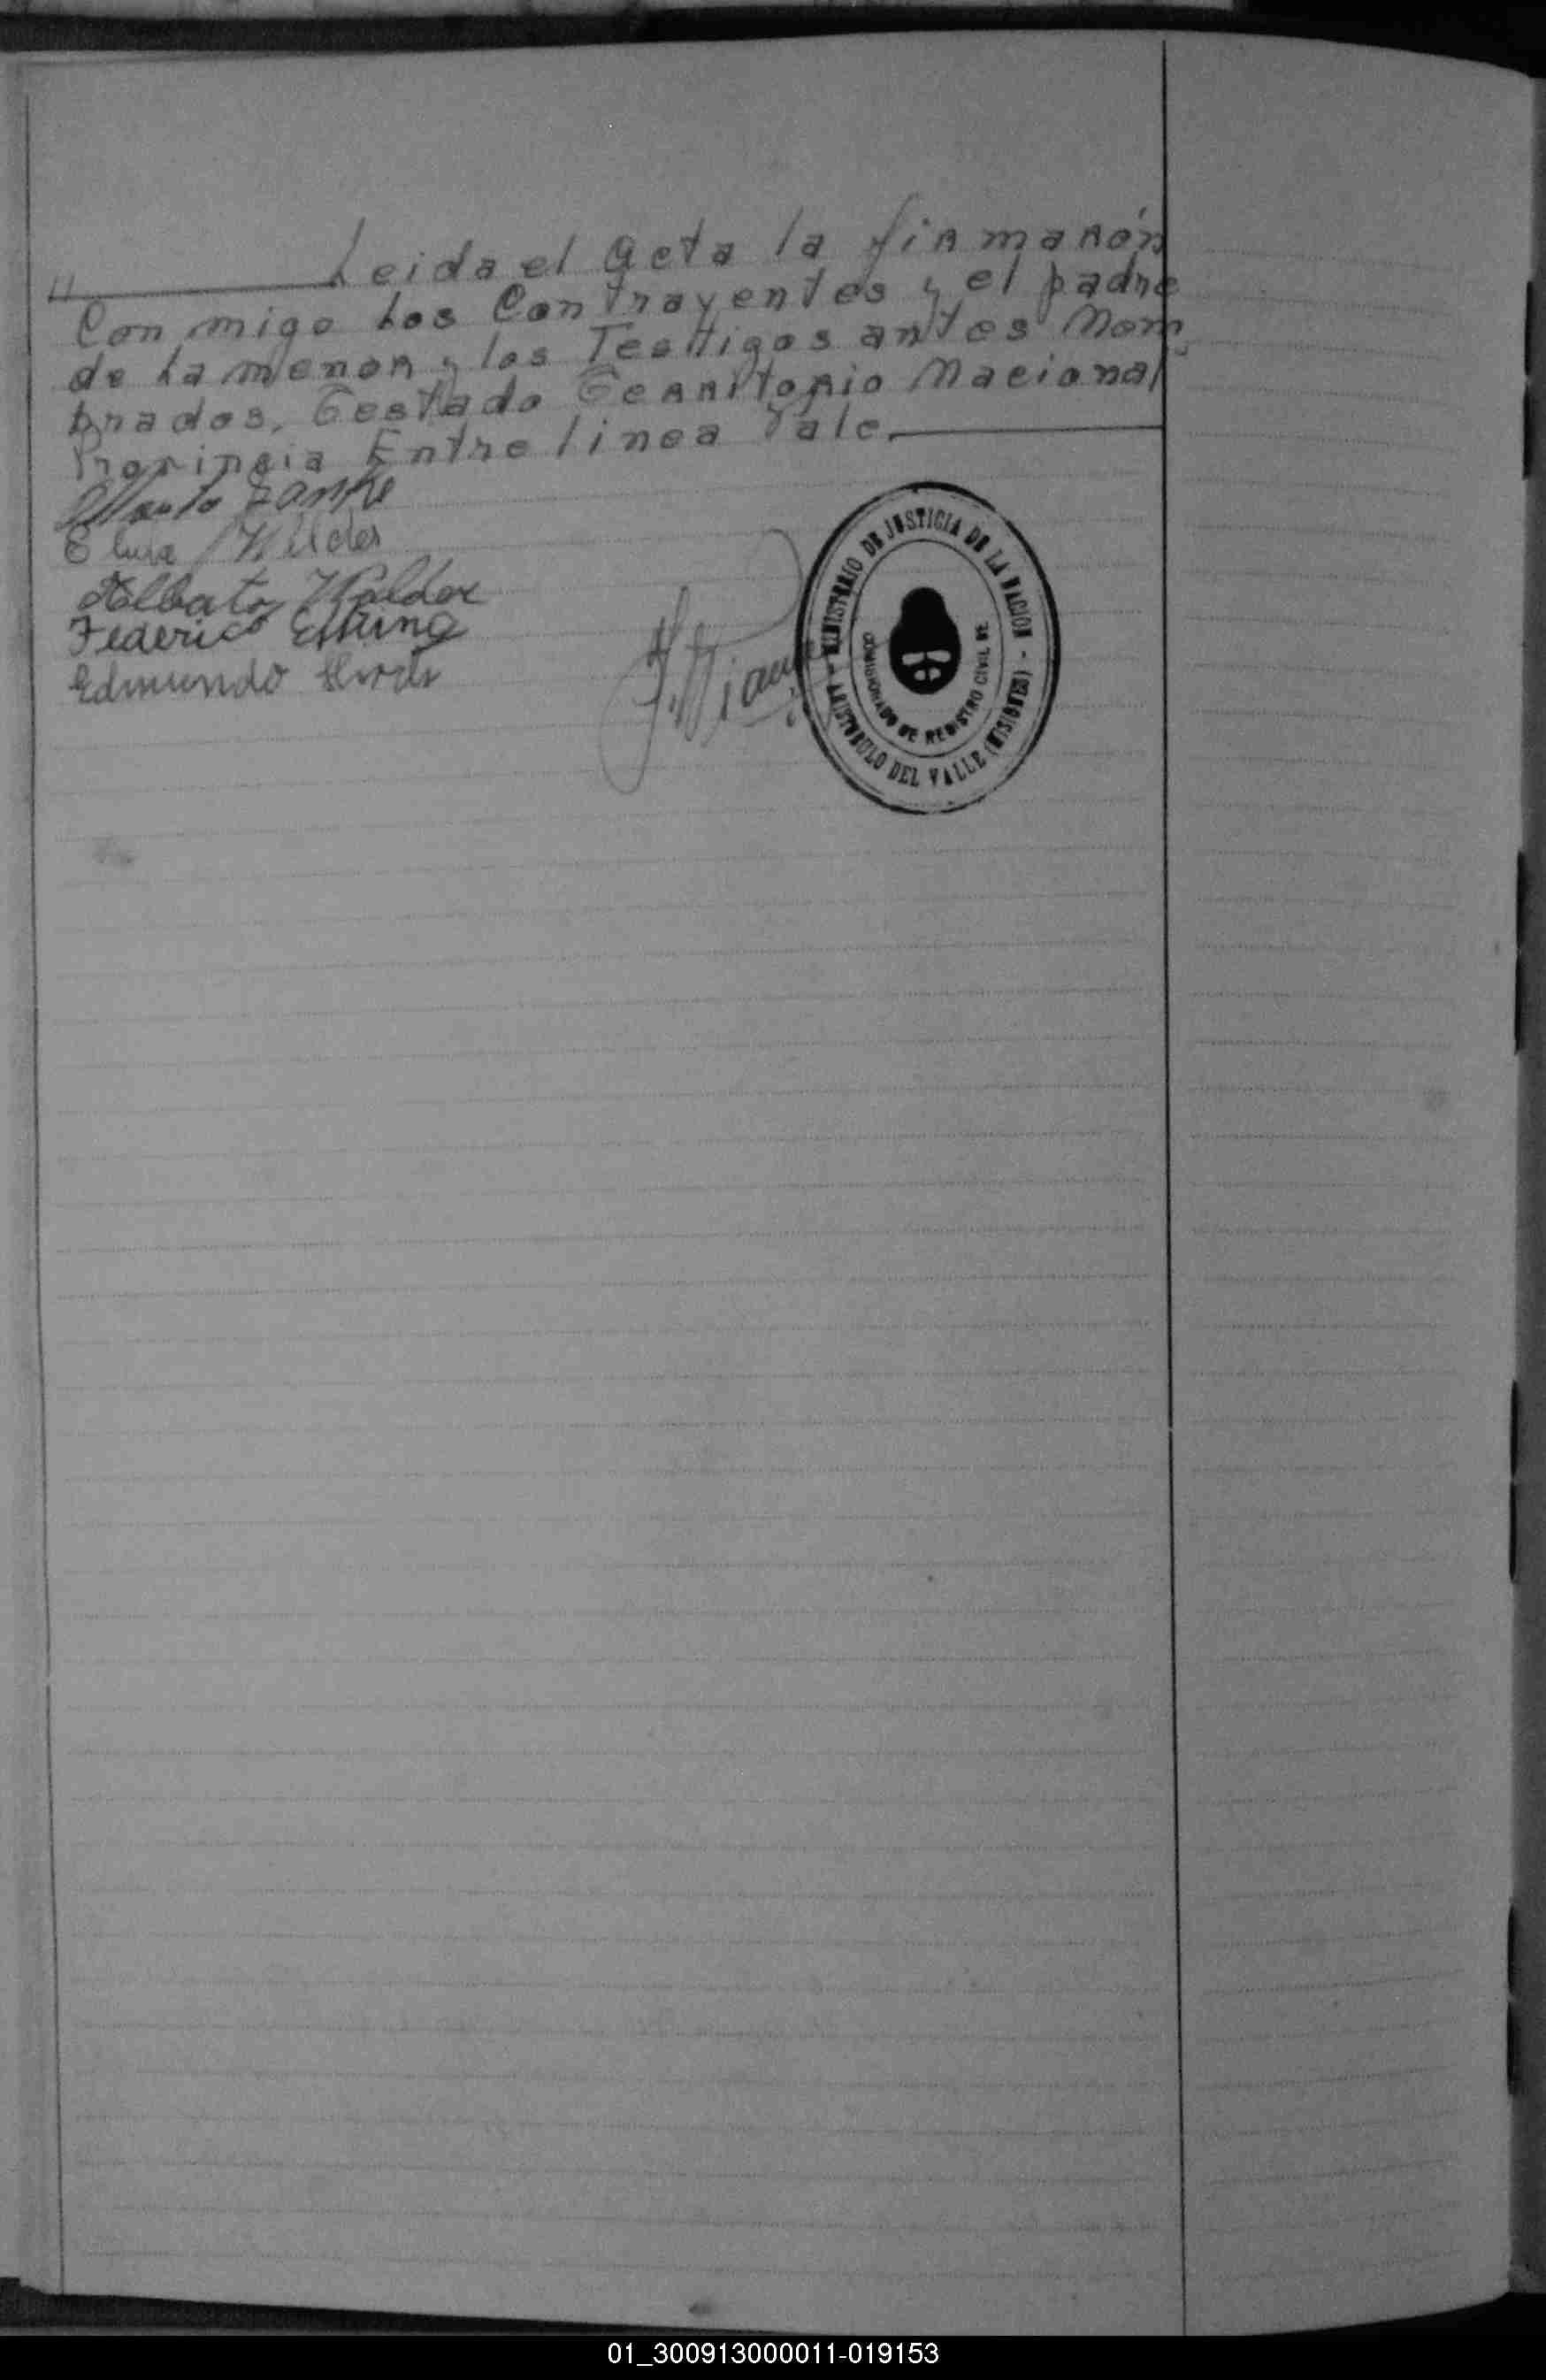 " Leida el acta la firmarón
Conmigo Los Contrayentes y el padre
de La menor y los Testtigos antes Nom,
brados, Testado Territorio Nacional
Provincia Entre linea Vale.
Zanke
Elvira Wilder
Alberto
Federico
Edmundo
MINISTERIO DE JUSTICIA DE LA NACION
COMISIONADO DE REGISTRO CIVIL DE
ARISTOBULO DEL VALLE (MISIONES)
01_300913000011-019153